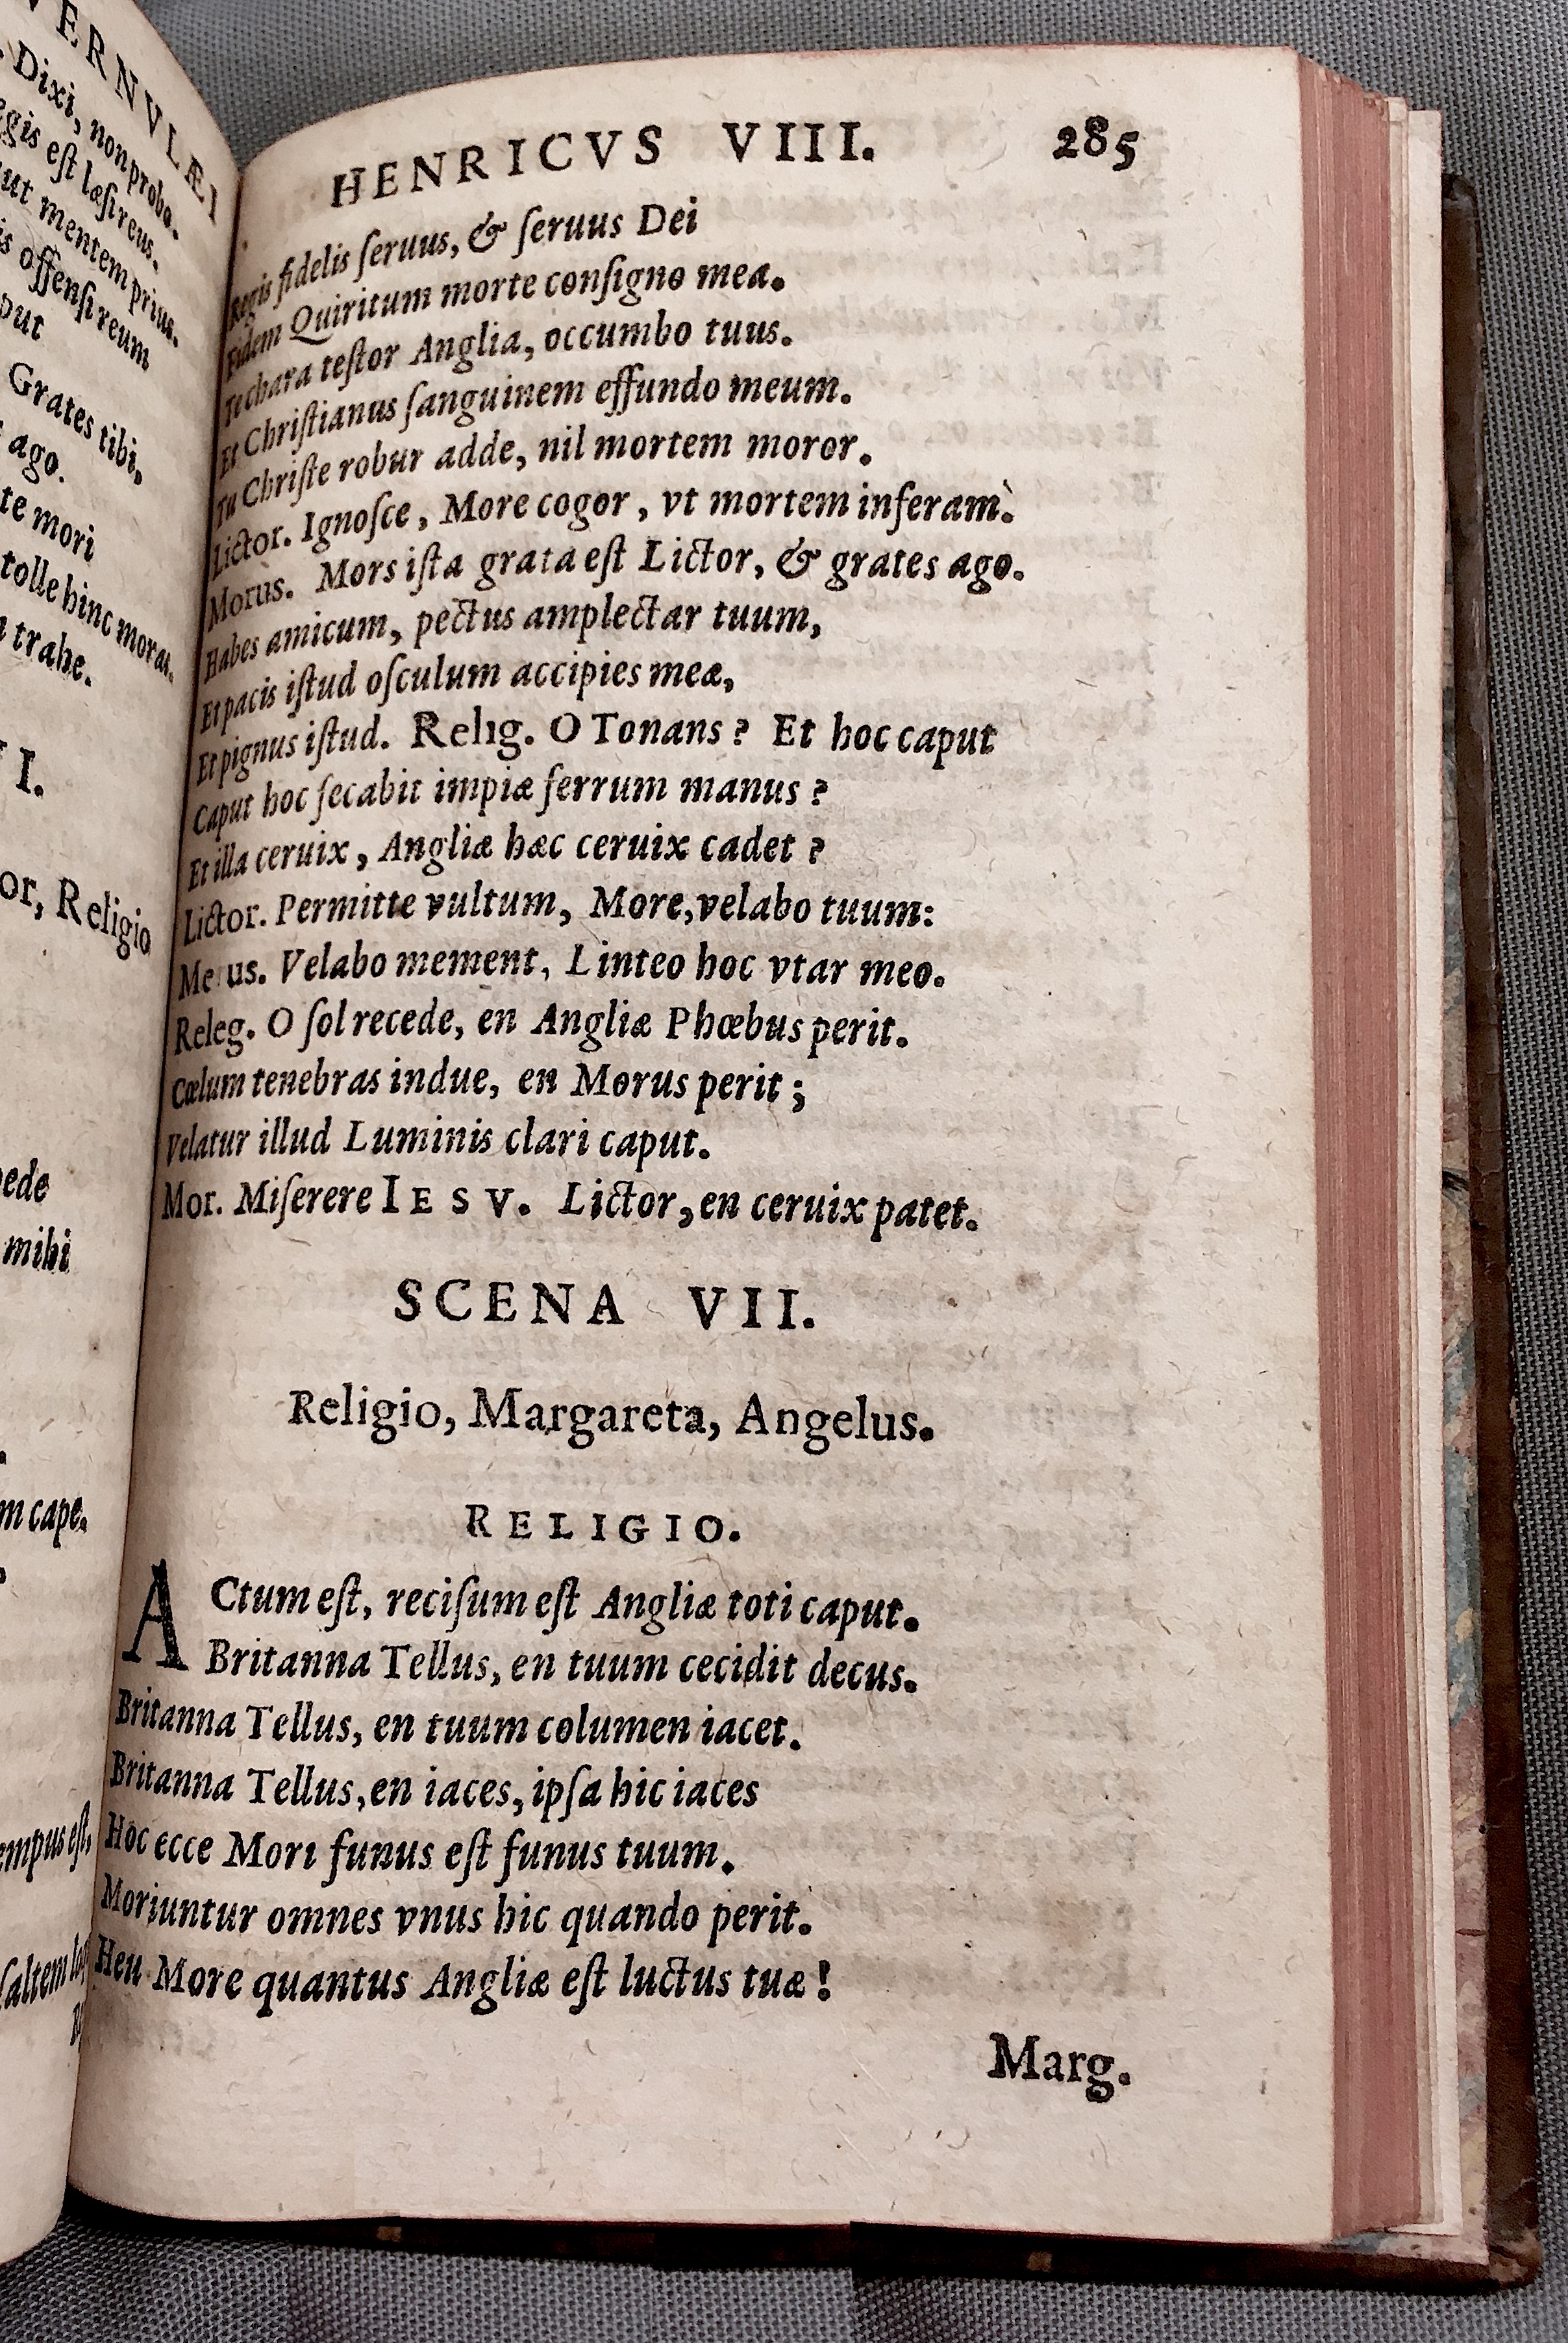 VERNVLÆI
Dixi, non probo.
egis eſt læſi reus.
ut mentem prius.
is offenſi reum
put
Grates tibi,
ago.
te mori
tolle hinc moras.
trahe.
I.
or, Religio
pede
mihi
m cape.
empus eſt,
ſaltem
HENRICVS VIII. 285
Regis fidelis ſeruus, & ſeruus Dei
Fidem Quiritum morte conſigno mea.
Te chara teſtor Anglia, occumbo tuus.
Et Chriſtianus ſanguinem effundo meum.
Tu Chriſte robur adde, nil mortem moror.
Lictor. Ignoſce, More cogor, vt mortem inferam.
Morus. Mors iſta grata eſt Lictor, & grates ago.
Habes amicum, pectus amplectar tuum,
Et pacis iſtud oſculum accipies meæ,
Et pignus iſtud. Relig. O Tonans? Et hoc caput
Caput hoc ſecabit impiæ ferrum manus?
Et illa ceruix, Angliæ hæc ceruix cadet?
Lictor. Permitte vultum, More, velabo tuum:
Morus. Velabo mement, Linteo hoc vtar meo.
Releg. O ſol recede, en Angliæ Phœbus perit.
Cælum tenebras indue, en Morus perit;
Velatur illud Luminis clari caput.
Mor. Miſerere IESV. Lictor, en ceruix patet.
SCENA VII.
Religio, Margareta, Angelus.
RELIGIO.
ACtum eſt, reciſum eſt Angliæ toti caput.
Britanna Tellus, en tuum cecidit decus.
Britanna Tellus, en tuum columen iacet.
Britanna Tellus, en iaces, ipſa hic iaces
Hoc ecce Mori funus eſt funus tuum.
Moriuntur omnes vnus hic quando perit.
Heu More quantus Angliæ eſt luctus tuæ!
Marg.